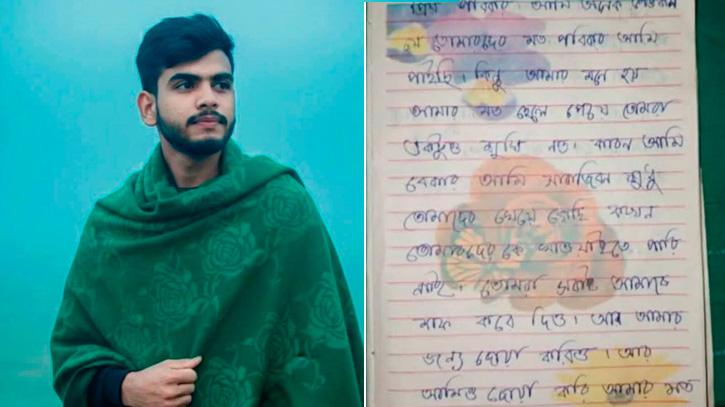 প্রিয় পরিবার। আমি অনেক
যে তোমাদের মত পরিবার আমি
পাইছি। কিন্তু আমার মনে হয়
আমার মত ছেলে পেয়ে তোমরা
একটুও সুখি নও। কারন আমি
বেকার আমি সারাজিবন শুধু
তোমাদের খেয়ে গেছি কখন
তোমাদের কে খাওয়াইতে পারি
নাই। তোমরা সবাই আমাকে
মাফ করে দিও। আর আমার
জন্যে দোয়া করিও। আর
আমিও দোয়া করি আমার মত